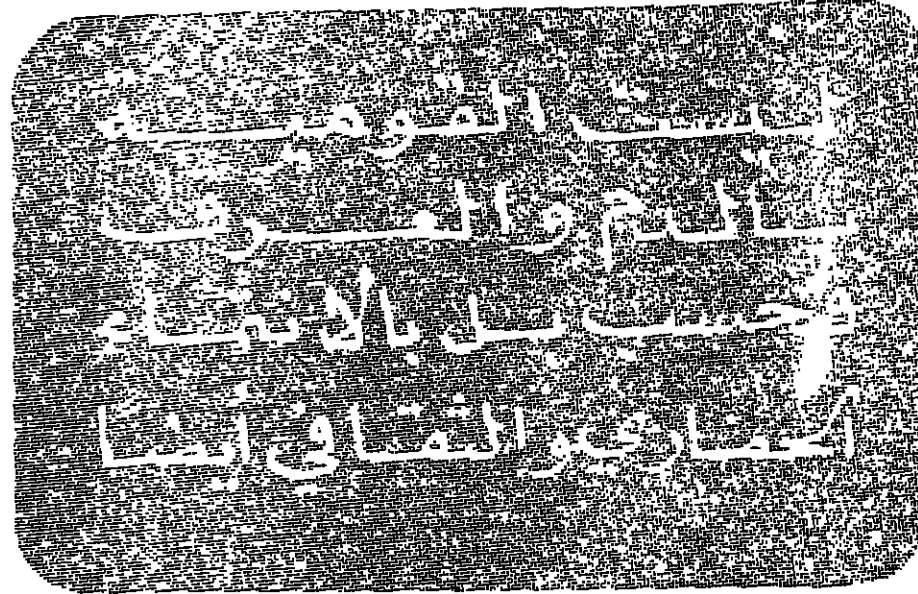 ليست القومية
بالدم والعرق
فحسب بل بالانتماء
الحضاري والثقافي أيضًا